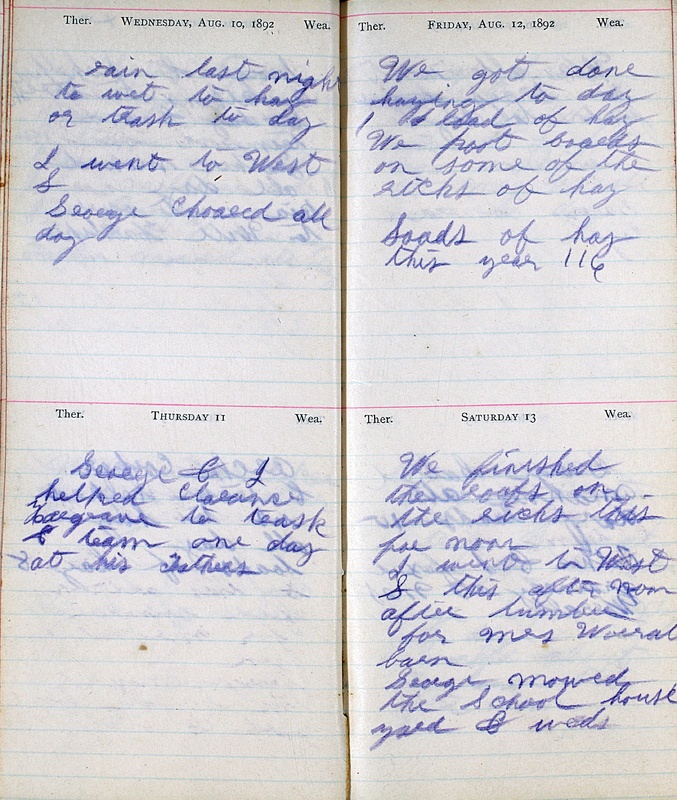 Ther. WEDNESDAY, AUG. 10, 1892 Wea.
rain last night
to wet to hay
or trash to day
I went to West
S
George Chored all
day
Ther. THURSDAY 11 Wea.
George & I
helped Clarance
to trash
& team one day
at his Fathers
Ther. FRIDAY, AUG. 12, 1892 Wea.
We got done
haying to day
1 load of hay
We poot boards
on some of the
ricks of hay
Loads of hay
this year 116
Ther. SATURDAY 13 Wea.
We finished
the roofs on
the ricks this
for noon
I went to West
S this after noon
after lumber
for Mrs Worral
barn
George mowed
the School house
yard & weds